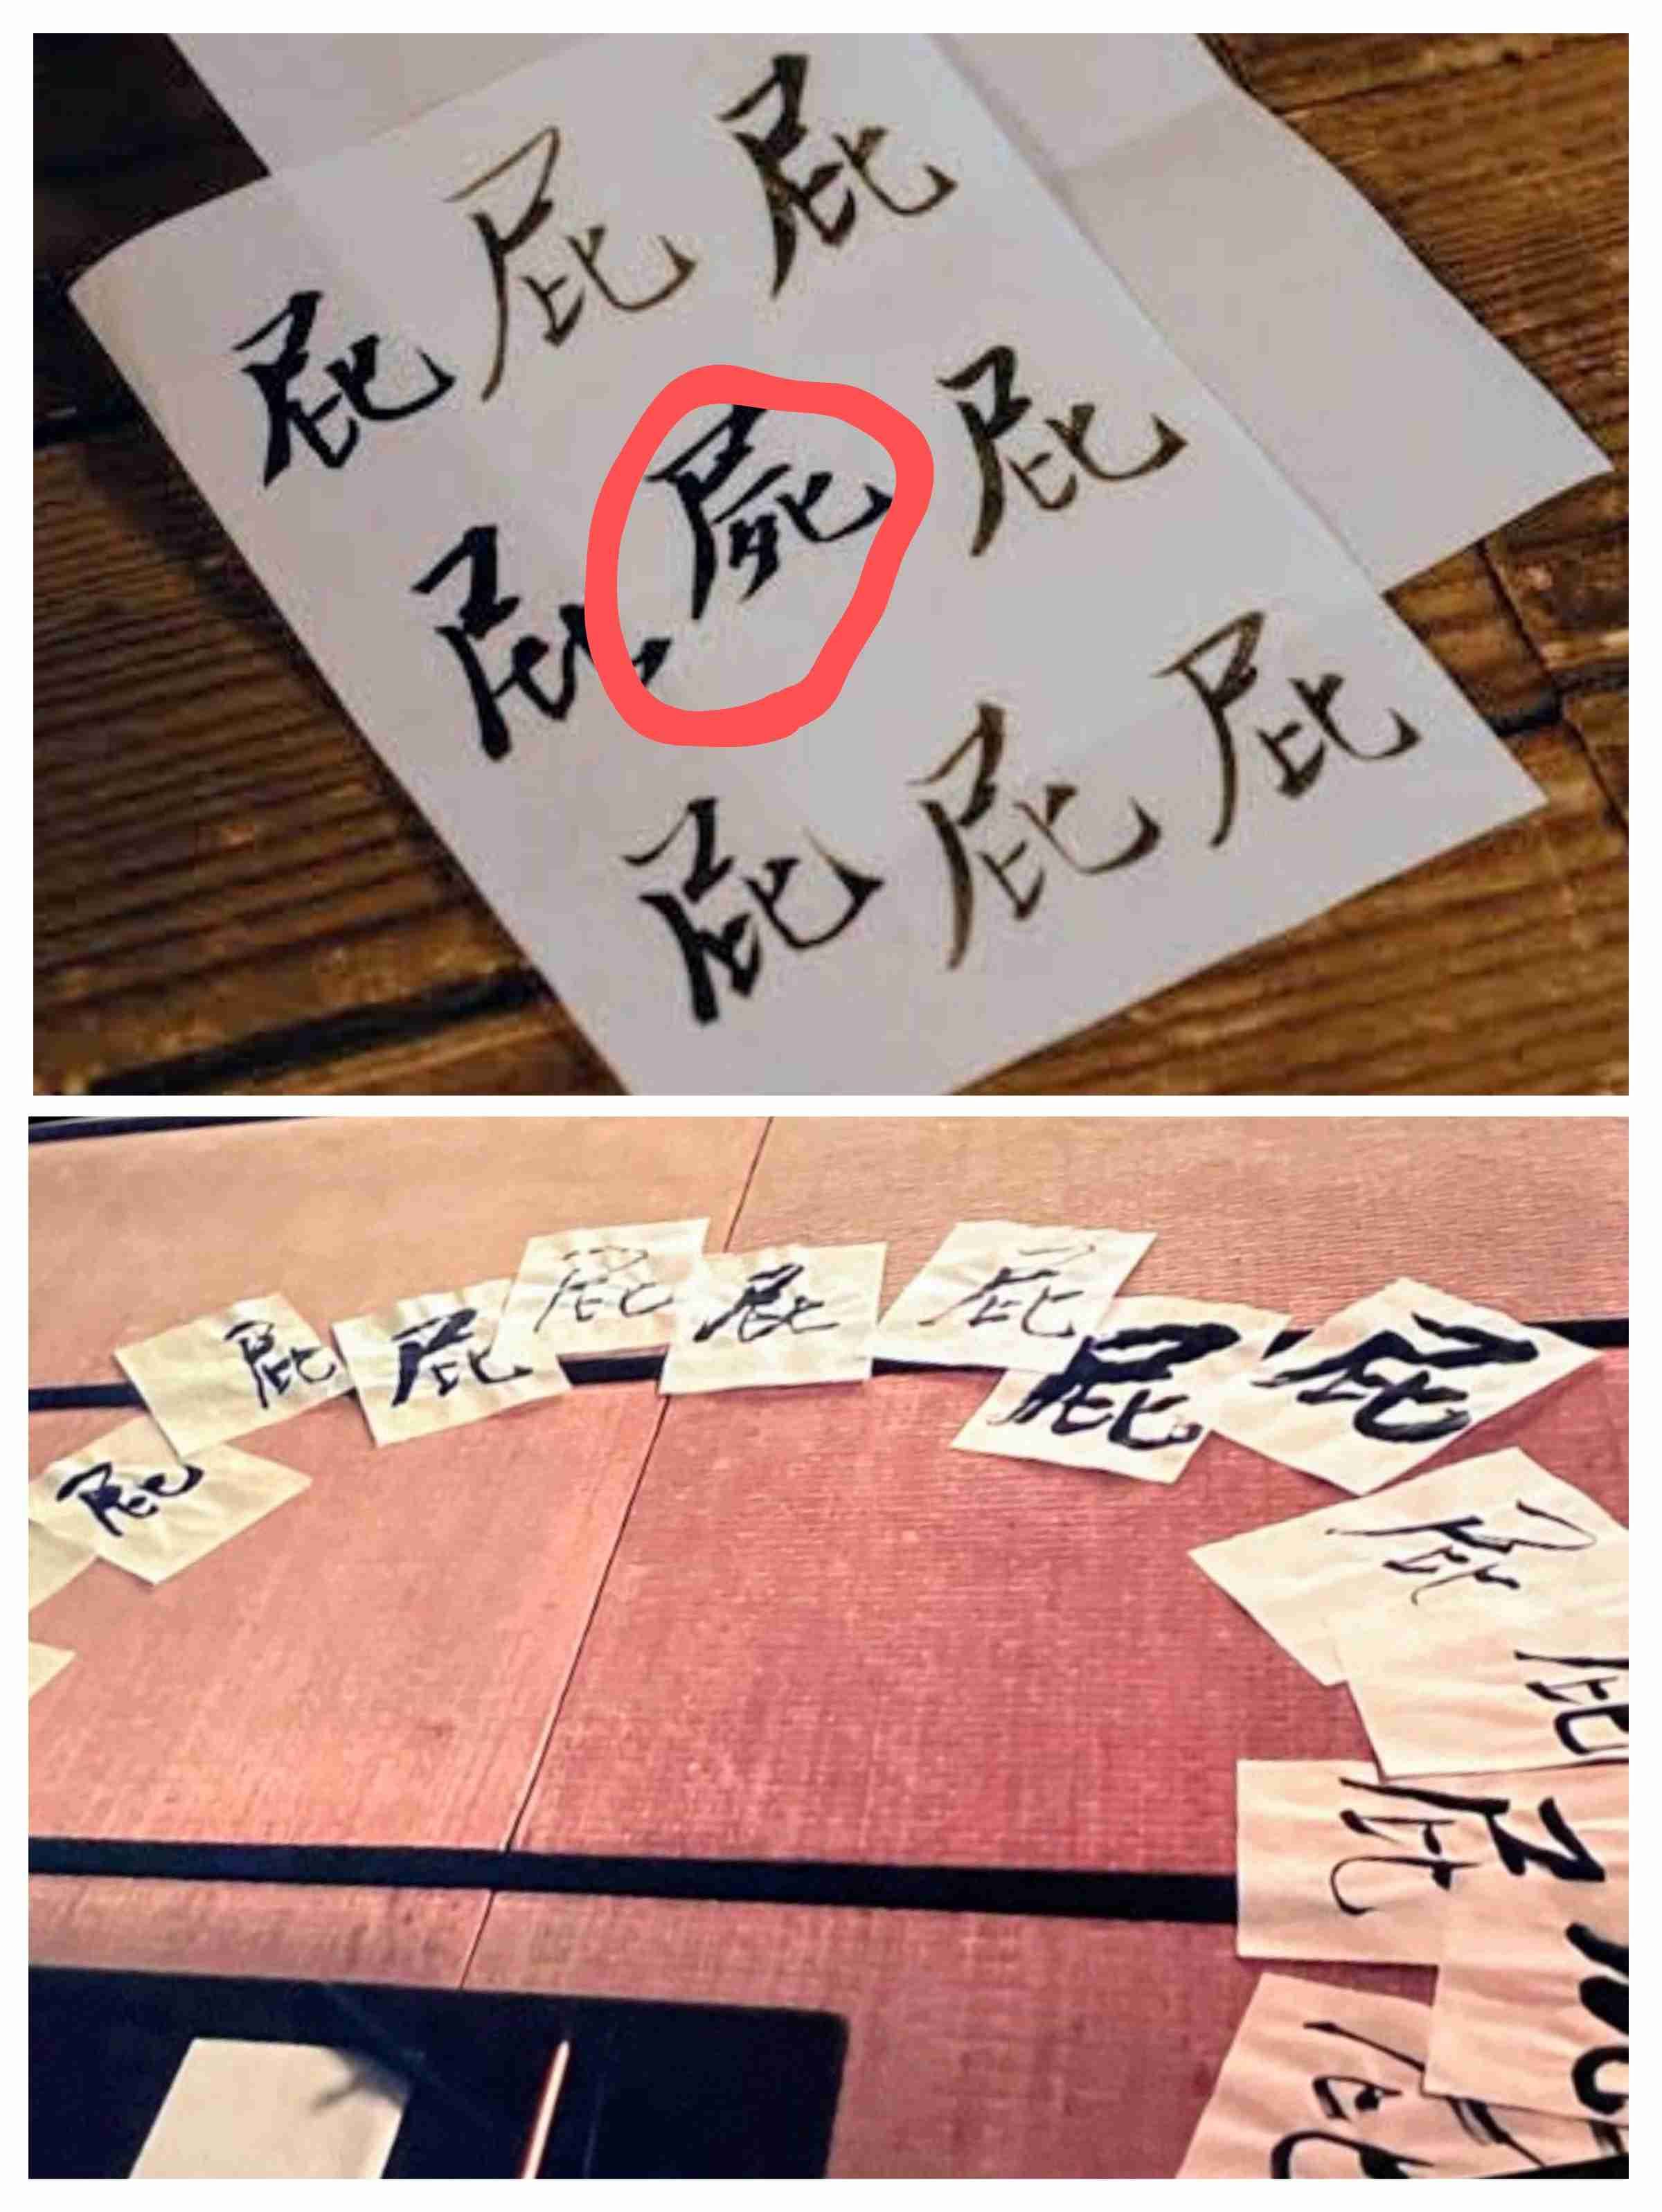 屁屁屁
屁屍屁
屁屁屁
屁
屁
屁
屁
屁
屁
屁
屁
屁